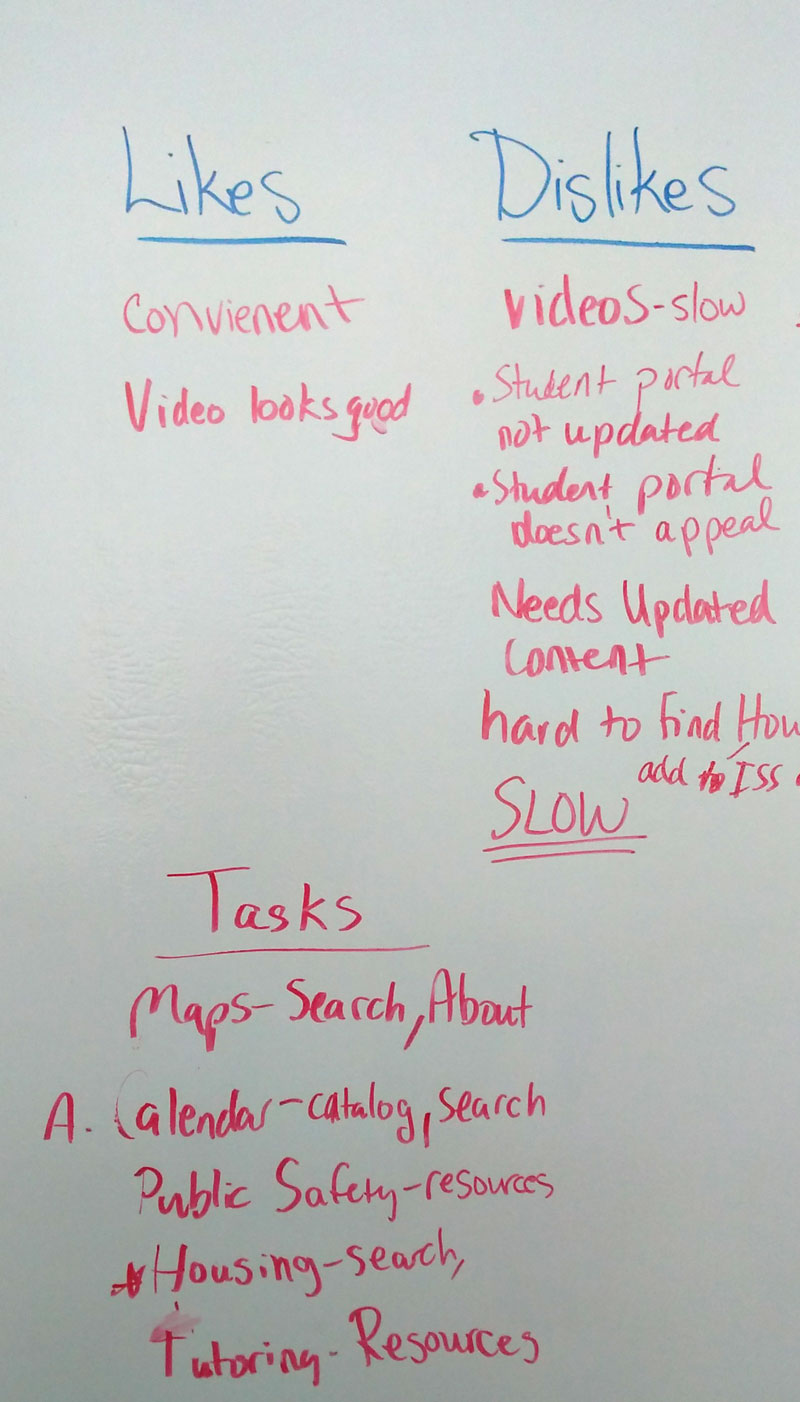 Likes
Convienent
Video looks good
Dislikes
Videos-slow
• Student portal
not updated
• Student portal
doesn't appeal
Needs Updated
Content
hard to find
add to ISS
SLOW
Tasks
Maps-Search, About
A. Calendar-catalog, search
Public Safety-resources
*Housing-search,
Tutoring-Resources